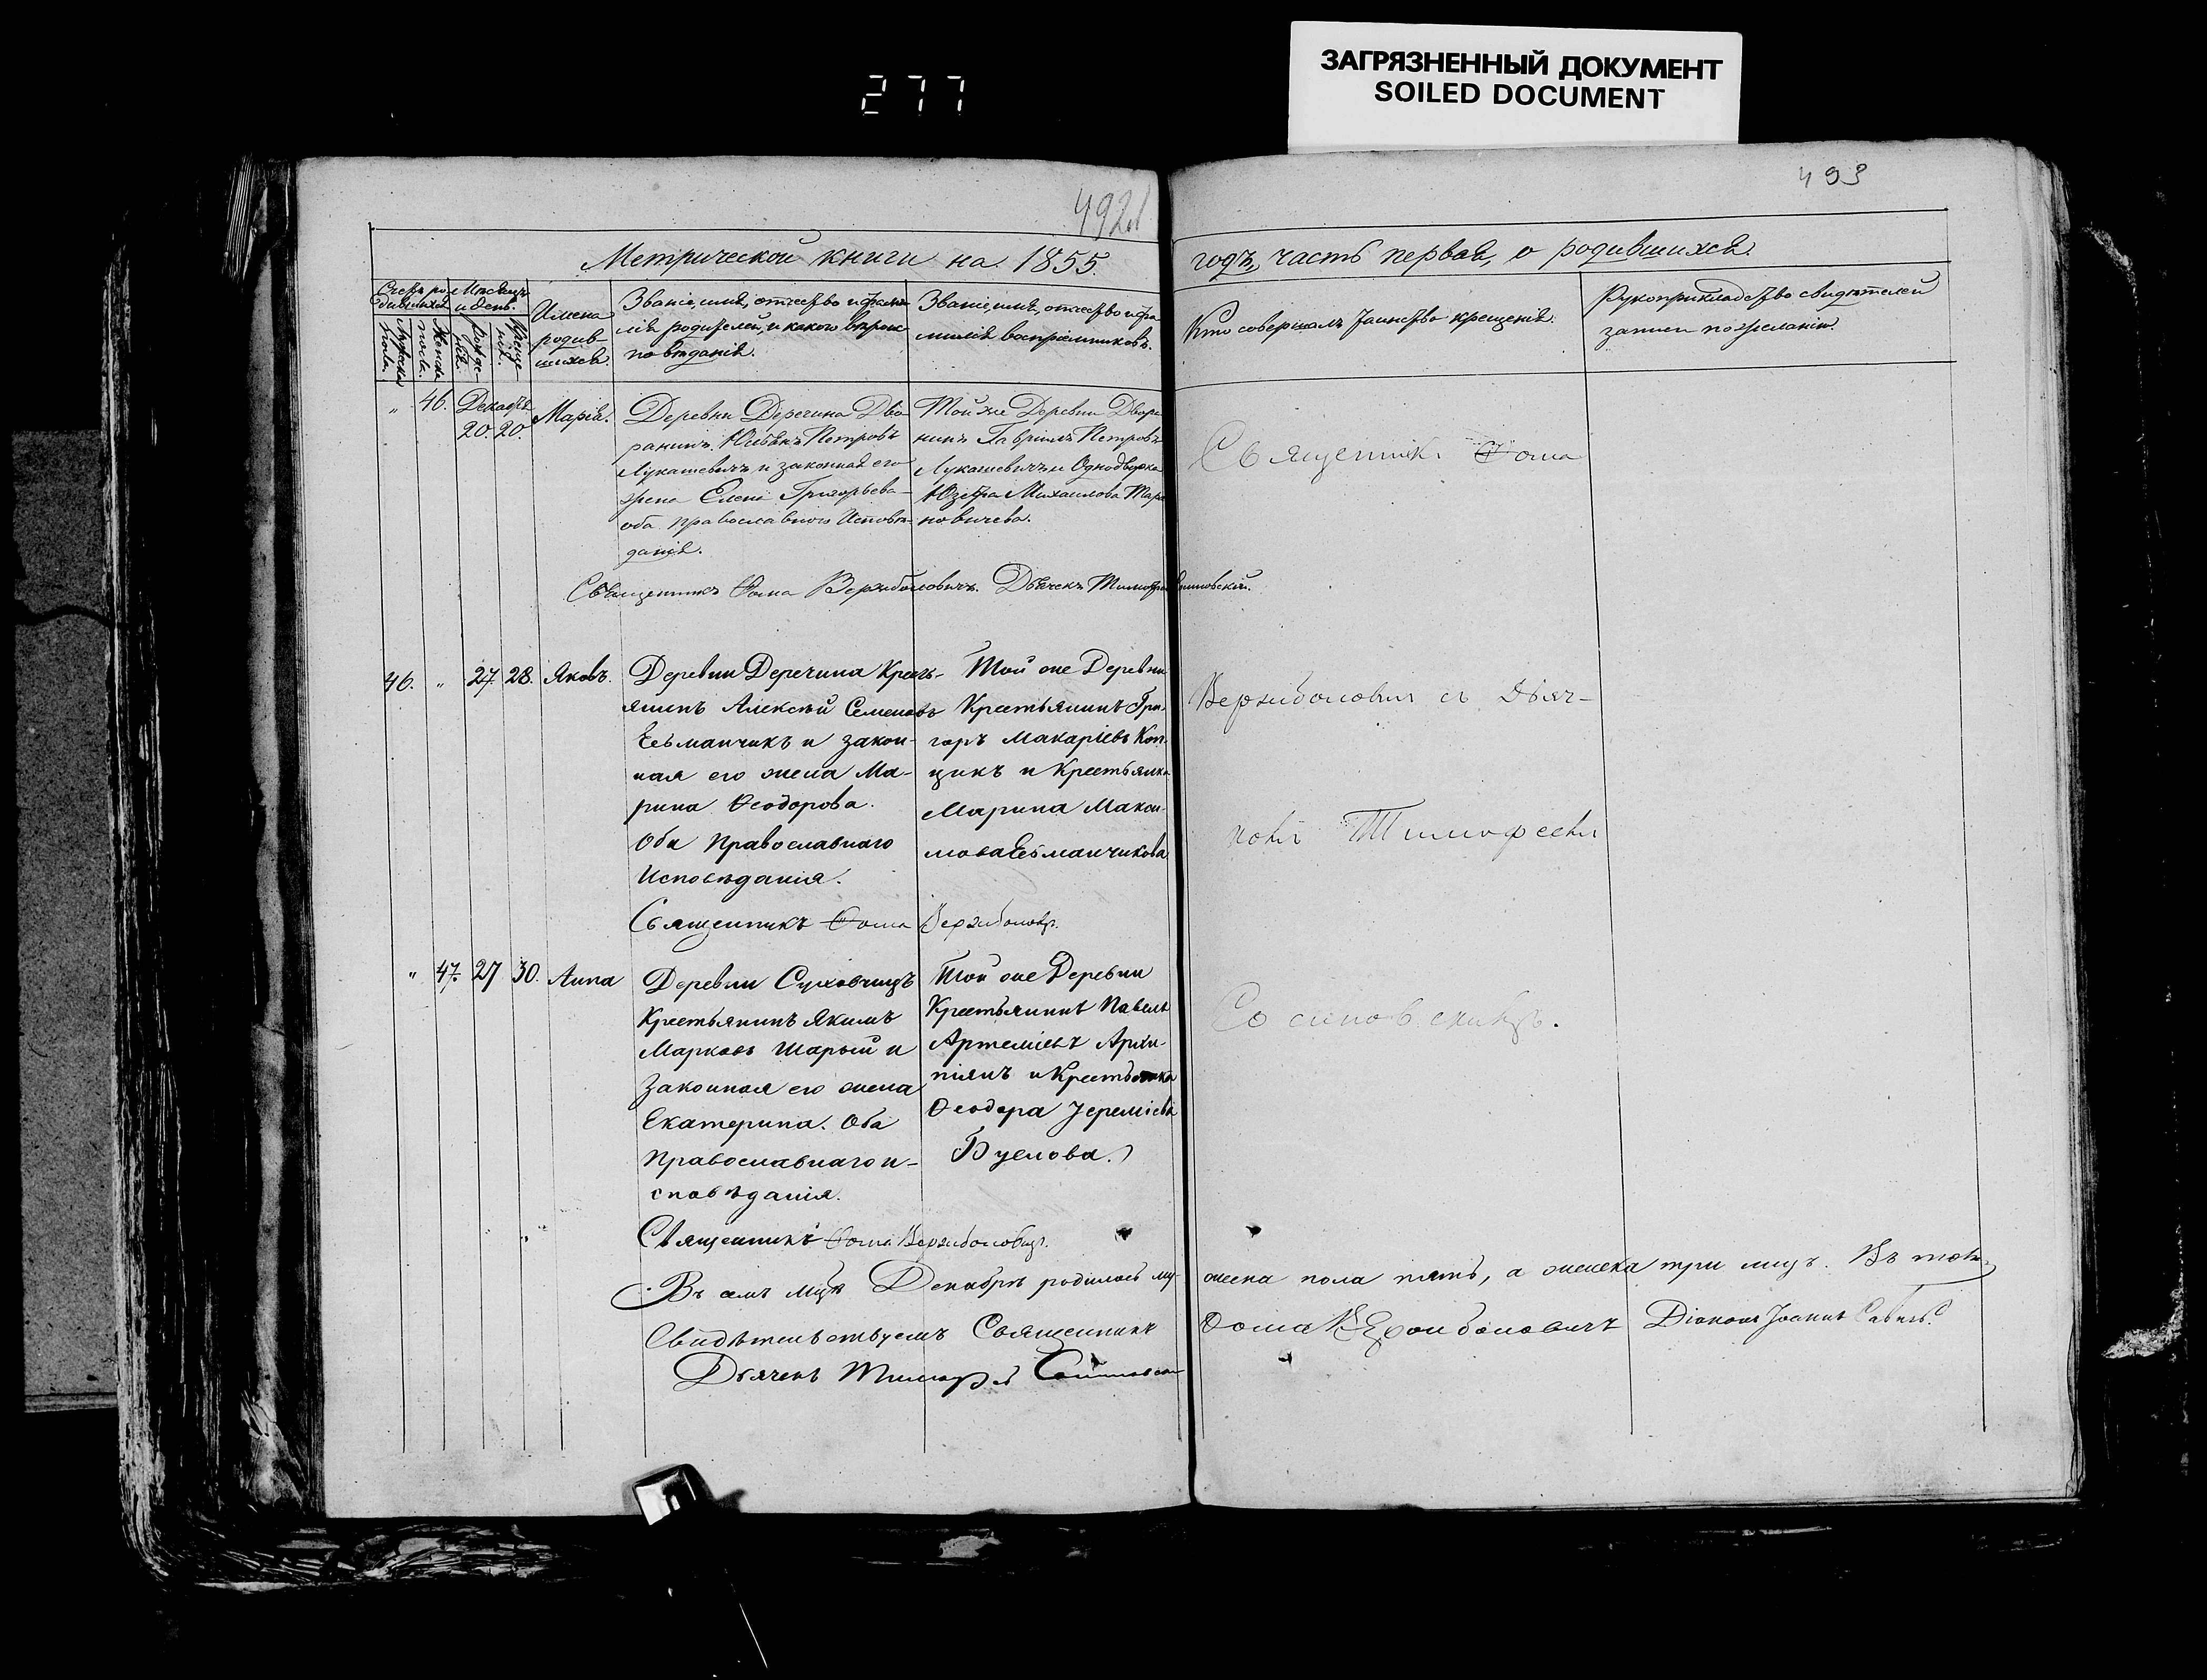 ЗАГРЯЗНЕННЫЙ ДОКУМЕНТ
SOILED DOCUMENT
277
492
493
Метрической книги на 1855.
годъ, часть первая, о родившихся.
Счетъ ро-
дившихся
Мѣсяцъ
и день.
Мужска
пола.
Женска
пола.
Рожде-
нія.
Креще-
нія.
Имена
родив-
шихся.
Званіе, имя, отчество и фами-
лія родителей, и какого вѣроис-
повѣданія.
Званіе, имя, отчество и фа-
милія воспріемниковъ.
Кто совершалъ таинство крещенія.
Рукоприкладство свидѣтелей
записи по желанію.
„ 46. Декабря
20. 20.
Марія.
Деревни Деречина Дво-
рянинъ Юльянъ Петровъ
Лукашевичъ и законная его
жена Елена Григорьева
оба православного Исповѣ-
данія.
Той же Деревни Дворя
нинъ Гавріилъ Петровъ
Лукашевичъ и Однодворка
Юзефа Михаилова Тара
новичева.
Священникъ Ѳома
Священникъ Ѳома Вержболовичъ. Дьячекъ Тимофей
46. „ 27. 28. Яковъ.
Деревни Деречина Кресть-
янинъ Алексѣй Семеновъ
Гетманчикъ и закон-
ная его жена Ма-
рина Ѳеодорова.
Оба Православнаго
Исповѣданія.
Той же Деревни
Крестьянинъ Гри-
горъ Макаріевъ Коп-
цикъ и Крестьянка
Марина Макси-
мова Гетманчикова
Вержболовичъ съ Дьяч-
комъ Тимофеемъ
Священникъ Ѳома Вержболовичъ.
„ 47. 27 30. Анна
Деревни Суховчицъ
Крестьянинъ Якимъ
Марковъ Шарый и
Законная его жена
Екатерина. Оба
Православнаго и-
сповѣданія.
Той же Деревни
Крестьянинъ Павелъ
Артеміевъ Архи-
піянъ и Крестьянка
Ѳеодора Іереміева
Священникъ Ѳома Вержболовичъ.
Въ семъ мцѣ Декабрѣ родилось му-
жеска пола пять, а женска три лицъ. Въ томъ
Свидѣтельствуемъ Священникъ
Ѳома Вержболовичъ Діаконъ Іоаннъ
Дьячекъ Тимофей